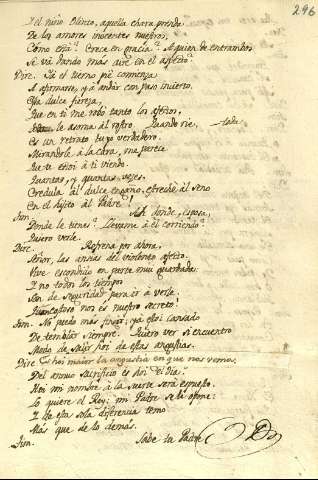 296
Y el niño Olinto, aquella chara prenda
De los amores inocentes nuestros,
Cómo está? Crece en gracia? A quien de entrambos
Se va dando más aire en el aspecto?
Dirc. Ya el tierno pié comienza
A afirmarse, y a andar con paso incierto.
Esta dulce fiereza,
Que en ti me robó tanto los afectos,
le asoma al rostro. Quando rie, todo
Es un retrato tuyo verdadero.
Mirandole a la cara, me parece
Que te estoi à ti viendo.
Quantas, y quantas vezes,
Credula al dulce engaño, estreché al seno
En el hijito al Padre!
Tim. Ah! donde, esposa,
Donde le tienes? Llevame à el corriendo:
Quiero verle.
Dirc. Refrena por ahora,
Señor, las ansias del violento afecto.
Vive escondido en parte mui guardada:
Y no todos los tiempos
Son de seguridad para ir à verle.
Quan costoso nos es nuestro secreto!
Tim. No puedo más fingir; ya estoi cansado
De temblar siempre. Quiero ver si encuentro
Modo de salir hoi de estas angustias.
Dirc. Es hoi maior la angustia en que nos vemos.
Del annuo sacrificio es hoi el dia:
Hoi mi nombre à la suerte será expuesto.
Lo quiere el Rey: mi Padre se le opone:
Y de esta sola diferencia temo
Más que de lo demás.
Tim. Sabe tu Padre